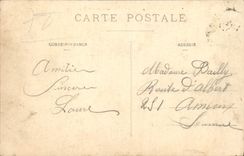 CARTE POSTALE
CORRESPONDANCE
ADRESSE
Amitié
Sincère
Laure
Madame Bailly
Route d'Albert
251
Amiens
Somme